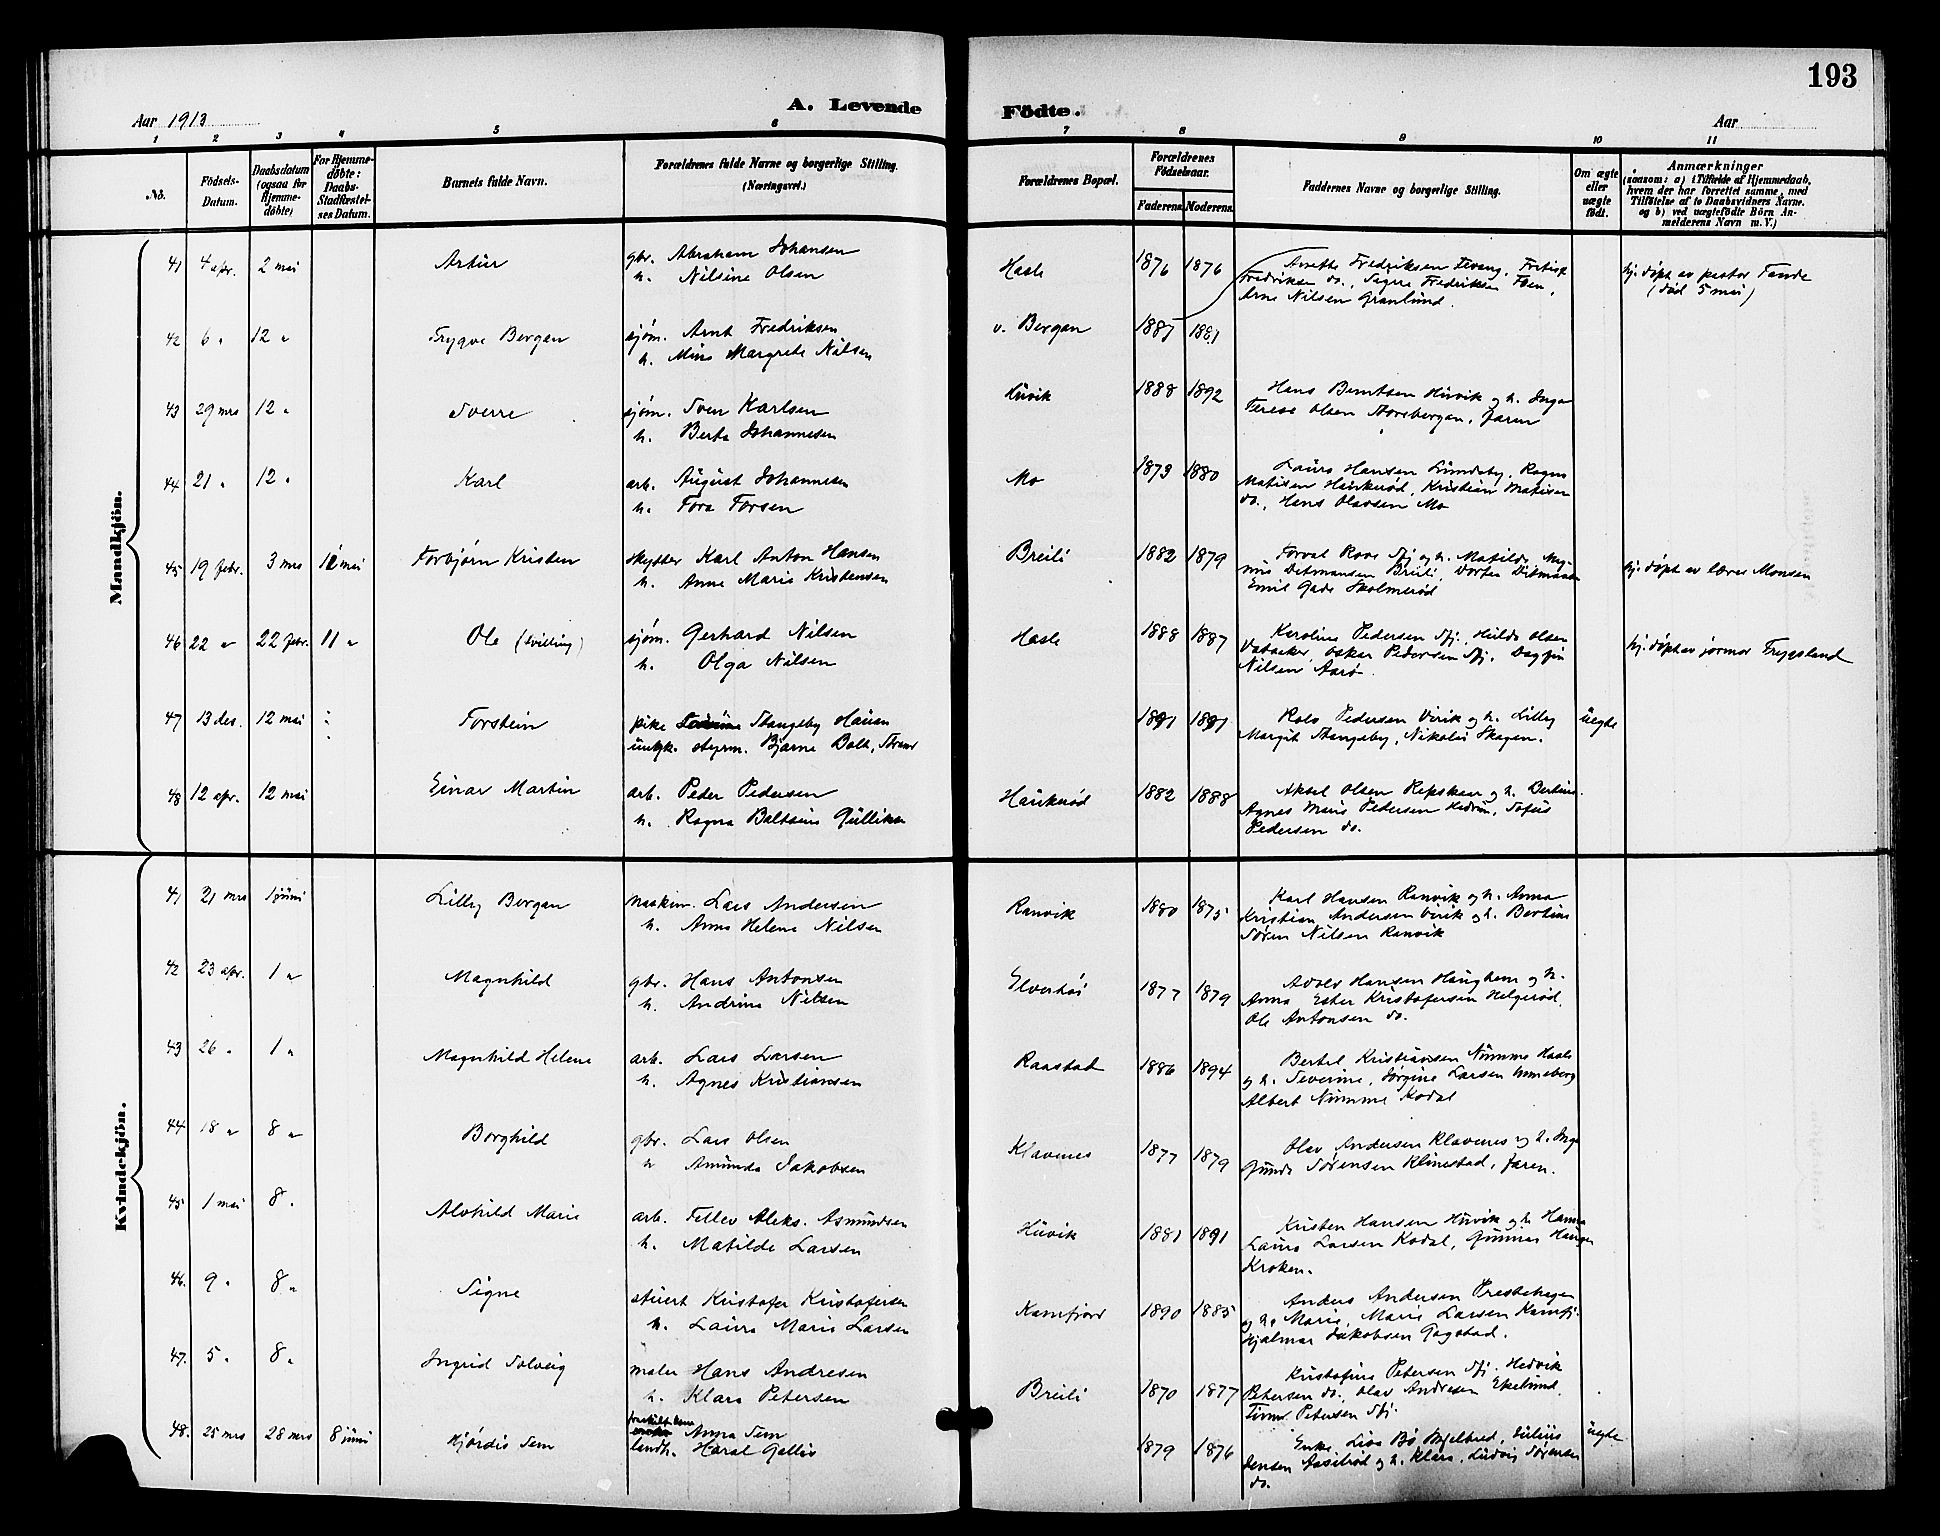 193
A. Levende Födte.
Aar 1913
Aar
1 2 3 4 5 6 7 8 9 10 11
No.
Födsels-Datum.
Daabsdatum (ogsaa for Hjemmedöbte)
For Hjemmedöbte: Daabs-Stadfæstelses Datum.
Barnets fulde Navn.
Forældrenes fulde Navne og borgerlige Stilling. (Næringsvei.)
Forældrenes Bopæl.
Forældrenes Födselsaar.
Faderens Moderens
Faddernes Navne og borgerlige Stilling.
Om ægte eller uægte födt.
Anmærkninger
(saasom: a) i Tilfælde af Hjemmedaab,
hvem der har forrettet samme, med
Tilföielse af to Daabsvidners Navne.
og b) ved uægtefödte Börn Anmelderens Navn m. V.)
Mandkjön.
41 4 apr. 2 mai Artur gbr. Abraham Johansen
h. Nilsine Olsen
Hasle 1876 1876
Anette Fredriksen Tevang, Fritjof
Fredriksen do., Signe Fredriksen Foen,
Arne Nilsen Granlund.
hj. døpt av pastor Tande
(død 5 mai)
42 6 " 12 " Trygve Bergan sjøm. Arnt Fredriksen
h. Mina Margrete Nilsen
v. Bergan 1887 1881
43 29 mrs 12 " Sverre sjøm. Sven Karlsen
h. Berta Johannesen
Huvik 1888 1892
Hans Berntsen Huvik og h. Inga
Terese Olsen Aorebergan, faren
44 21 " 12 " Karl arb. August Johannesen
h. Tora Torsen
Mo 1873 1880
Laura Hansen Lundeby, Ragna
Matisen Haukerød, Kristian Matisen
do., Hans Olavsen Mo
45 19 febr. 3 mrs 12 mai Torbjørn Kristen skytter Karl Anton Hansen
h. Anne Marie Kristensen
Breili 1882 1879
Torval Roos Sfj og h. Matilde, Magnus
Ditmansen Breili, Dortea Ditmansen
Emil Gade Skolmerød
hj. døpt av lærer Monsen
46 22 " 22 febr. 11 " Ole (tvilling) sjøm. Gerhard Nilsen
h. Olga Nilsen
Hasle 1888 1887
Karoline Pedersen Sfj., Hulda Olsen
Vataker, Oskar Pedersen Sfj. Dagfin
Nilsen Aarø.
hj. døpt av jormor Trygsland
47 13 des. 12 mai Torstein pike Stangeby Hauan
ungk. styrm. Bjarne Bolt, Strand
1891 1891
Rolv Pedersen Virik og h. Lilly
Margit Stangeby, Nikolai Skagen.
uegte
48 12 apr. 12 mai Einar Martin arb. Peder Pedersen
h. Ragna Baltsine Gulliksen
Haukerød 1882 1888
Aksel Olsen Repskan og h. Bertine.
Agnes Marie Pedersen Hedrum, Sofus
Pedersen do.
Kvindekjön.
41 21 mrs 1 juni Lilly Bergan maskin. Lars Andersen
h. Anna Helene Nilsen
Ranvik 1880 1875
Karl Hansen Ranvik og h. Anna
Kristian Andersen Virik og h. Bertine
Søren Nilsen Ranvik
42 23 apr. 1 " Magnhild gbr. Hans Antonsen
h. Andrine Nilsen
Elverhøi 1877 1879
Adolv Hansen Haughem og h.
Anna Ester Kristofersen Helgerød,
Ole Antonsen do.
43 26 " 1 " Magnhild Helene arb. Lars Larsen
h. Agnes Kristiansen
Raastad 1886 1894
Bertel Kristiansen Nomme Hasle
og h. Severine, Jørgine Larsen Unneberg
Albert Nomme Kodal
44 18 " 8 " Borghild gbr. Lars Olsen
h Amunda Jakobsen
Klavenes 1877 1879
Olav Andersen Klavenes og h. Inga
Gunda Sørensen Klinestad, faren.
45 1 mai 8 " Alvhild Marie arb. Tellev Aleks. Asmundsen
h. Matilde Larsen
Huvik 1881 1891
Kristen Hansen Huvik og h. Hanna
Laura Larsen Kodal, Gunnar Haugan
Kroken.
46. 9 " 8 " Signe stuert Kristofer Kristofersen
h. Laura Marie Larsen
Kamfjord 1890 1885
Anders Andersen Prestehagen
og h. Marie, Marie Larsen Kamfj.
Hjalmar Jakobsen Gogstad.
47. 5 " 8 " Ingrid Solveig maler Hans Andresen
h. Klara Petersen
Breili 1870 1877
Kristofine Petersen Sfj. Hedvik
Petersen do. Olav Andresen Ekelund,
Petersen Sfj.
48. 25 mrs 28 mrs 8 juni Hjørdis Sem Anna Sem
landh. Haral Gallis
1879 1876
Enke Lisa Bø Mjelbred, Julius
Jensen Aaselrød og h. Klara, Ludvig Sørensen
do.
uegte